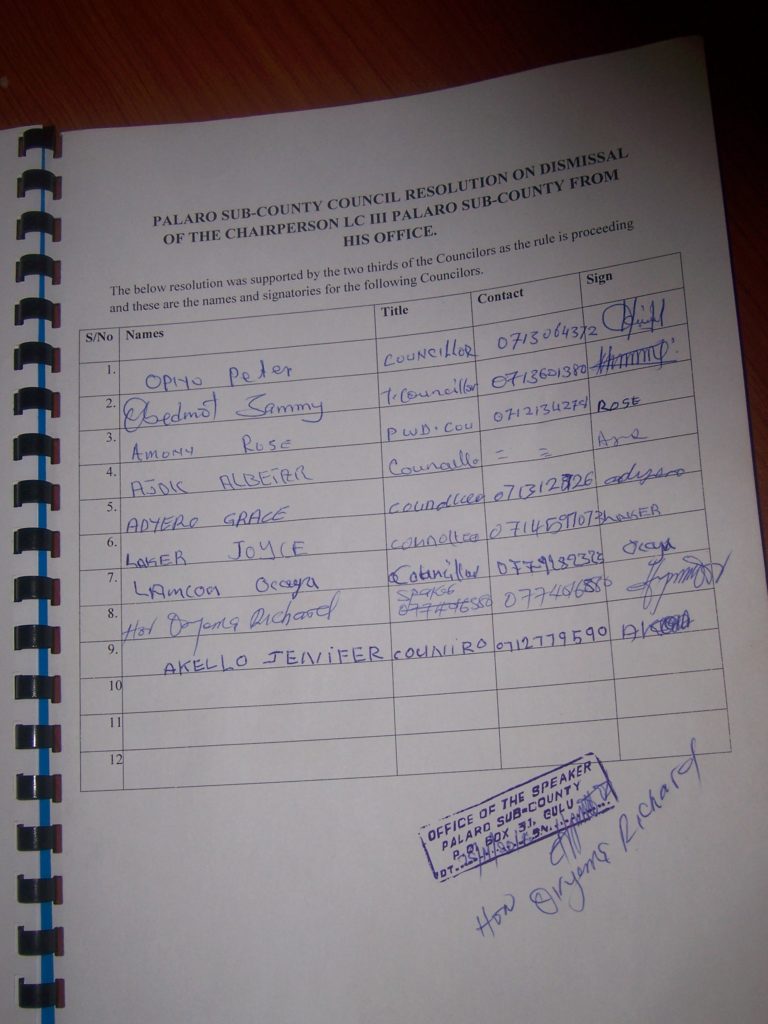 PALARO SUB-COUNTY COUNCIL RESOLUTION ON DISMISSAL
OF THE CHAIRPERSON LC III PALARO SUB-COUNTY FROM
HIS OFFICE.
The below resolution was supported by the two thirds of the Councilors as the rule is proceeding
and these are the names and signatories for the following Councilors.
S/No Names Title Contact Sign
1. OPIYO Peter COUNCILLOR 0713064372
2. Obedmot Sammy Y. Councillor 0713601380
3. AMONY ROSE PWD. COU 0712134274 ROSE
4. AJOK ALBEIER Councello = =
5. ADYERO GRACE
6. LAKER JOYCE LAKER
7. LAMCON Ocaya Councillor Ocaya
8. Hon Oryema Richard
9. AKELLO JENIFER COUNIRO 0712779590
10
11
12
OFFICE OF THE SPEAKER
PALARO SUB-COUNTY
P.O. BOX 31, GULU
DT. SN.
Hon Oryema Richard